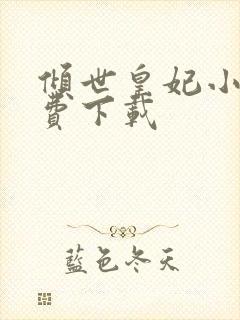 傾世皇妃小
費下載
藍色冬天